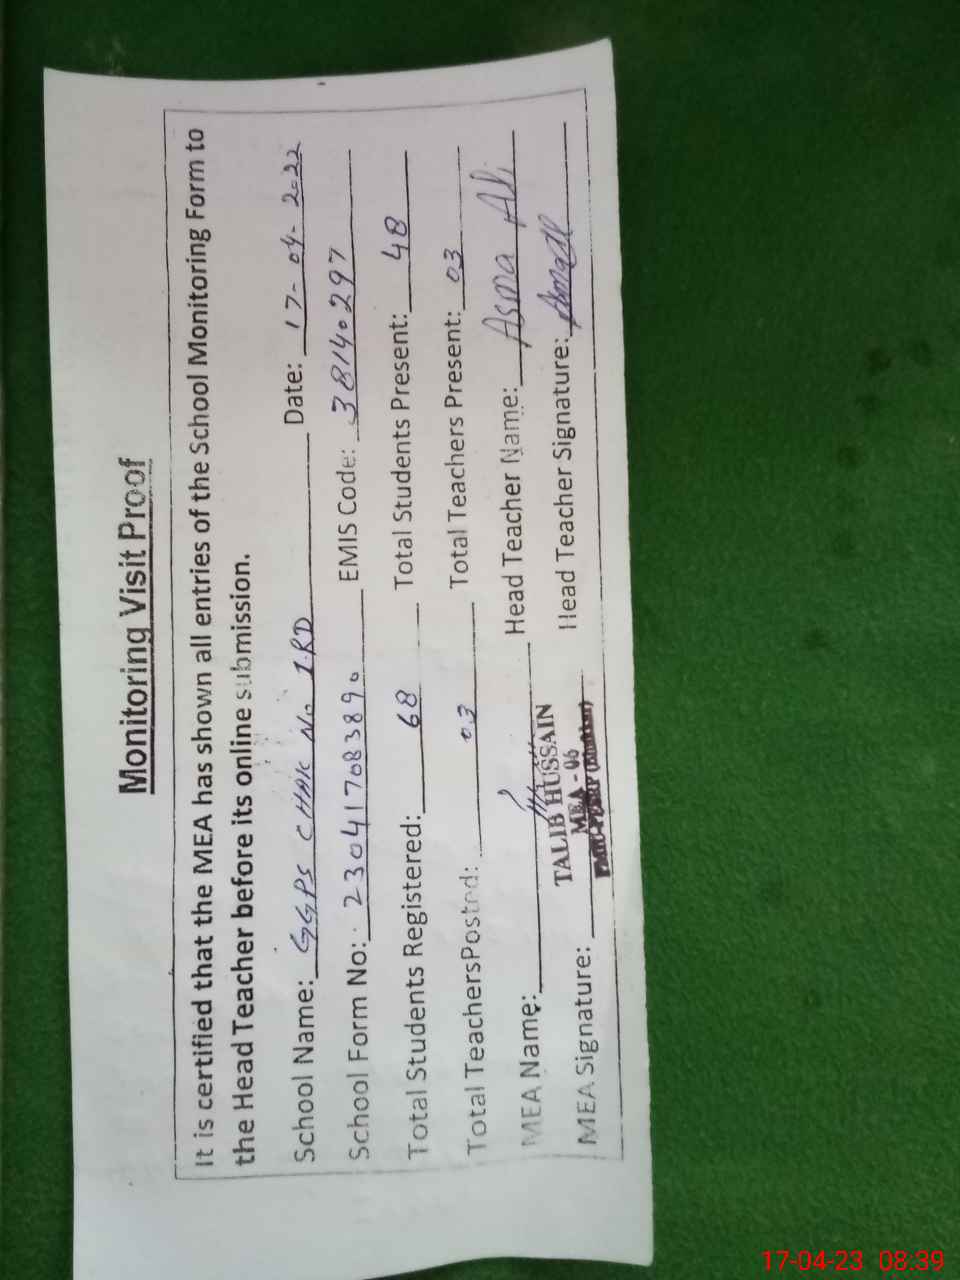 Monitoring Visit Proof
It is certified that the MEA has shown all entries of the School Monitoring Form to
the Head Teacher before its online submission.
School Name: GGPS CHAK No 1.RD Date: 17-04-2022
School Form No: 23041708389０ EMIS Code: 38140297
Total Students Registered: 68 Total Students Present: 48
Total TeachersPosted: 03 Total Teachers Present: 03
MEA Name: Head Teacher Name: Asma Ali
TALIB HUSSAIN
MEA - 06
MEA Signature: Head Teacher Signature:
17-04-23 08:39